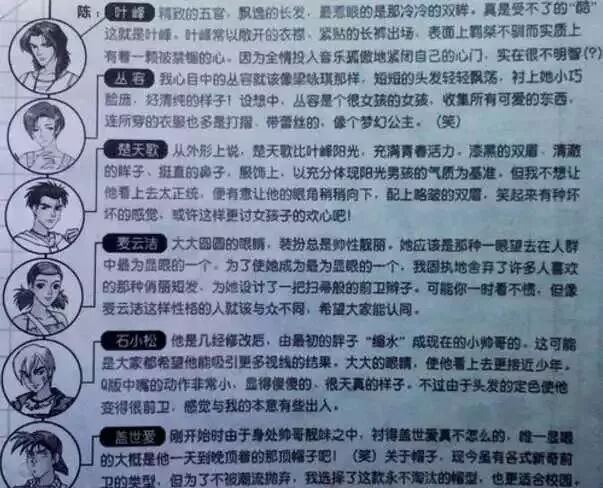 陈：叶峰 精致的五官，飘逸的长发，最惹眼的是那冷冷的双眸。真是受不了的“酷”
这就是叶峰。叶峰常以敞开的衣襟、紧贴的长裤出场，表面上羁桀不驯而实质上
有着一颗被禁锢的心。因为全情投入音乐孤傲地紧闭自己的心门，实在很不明智(?)
丛容 我心目中的丛容就该像梁咏琪那样，短短的头发轻轻飘荡，衬上她小巧
脸庞，好清纯的样子！设想中，丛容是个很女孩的女孩，收集所有可爱的东西，
连所穿的衣服也多是打摺、带蕾丝的，像个梦幻公主。（笑）
楚天歌 从外形上说，楚天歌比叶峰阳光，充满青春活力，漆黑的双眉、清澈
的眸子、挺直的鼻子，服饰上，以充分体现阳光男孩的气质为基准，但我不想让
他看上去太正统，便有意让他的眼角稍稍向下，配上略皱的双眉，笑起来有种坏
坏的感觉，或许这样更讨女孩子的欢心吧！
麦云洁 大大圆圆的眼睛，装扮总是帅性靓丽。她应该是那种一眼望去在人群
中最为显眼的一个。为了使她成为最为显眼的一个，我固执地舍弃了许多人喜欢
的那种俏丽短发，为她设计了一把扫帚般的前卫辫子。可能你一时看不惯，但像
麦云洁这样性格的人就该与众不同，希望大家能认同。
石小松 他是几经修改后，由最初的胖子“缩水”成现在的小帅哥的。这可能
是大家都希望他能吸引更多视线的结果。大大的眼睛，使他看上去更接近少年。
Q版中嘴的动作非常小，显得傻傻的，很天真的样子。不过由于头发的定色使他
变得很前卫，感觉与我的本意有些出入。
盖世爱 刚开始时由于身处帅哥靓妹之中，衬得盖世爱真不怎么的，唯一显眼
的大概是他一天到晚顶着的那顶帽子吧！（笑）关于帽子，现今虽有各式新奇前
卫的类型，但为了不被潮流抛弃，我选择了这款永不淘汰的帽型，也更适合校园，